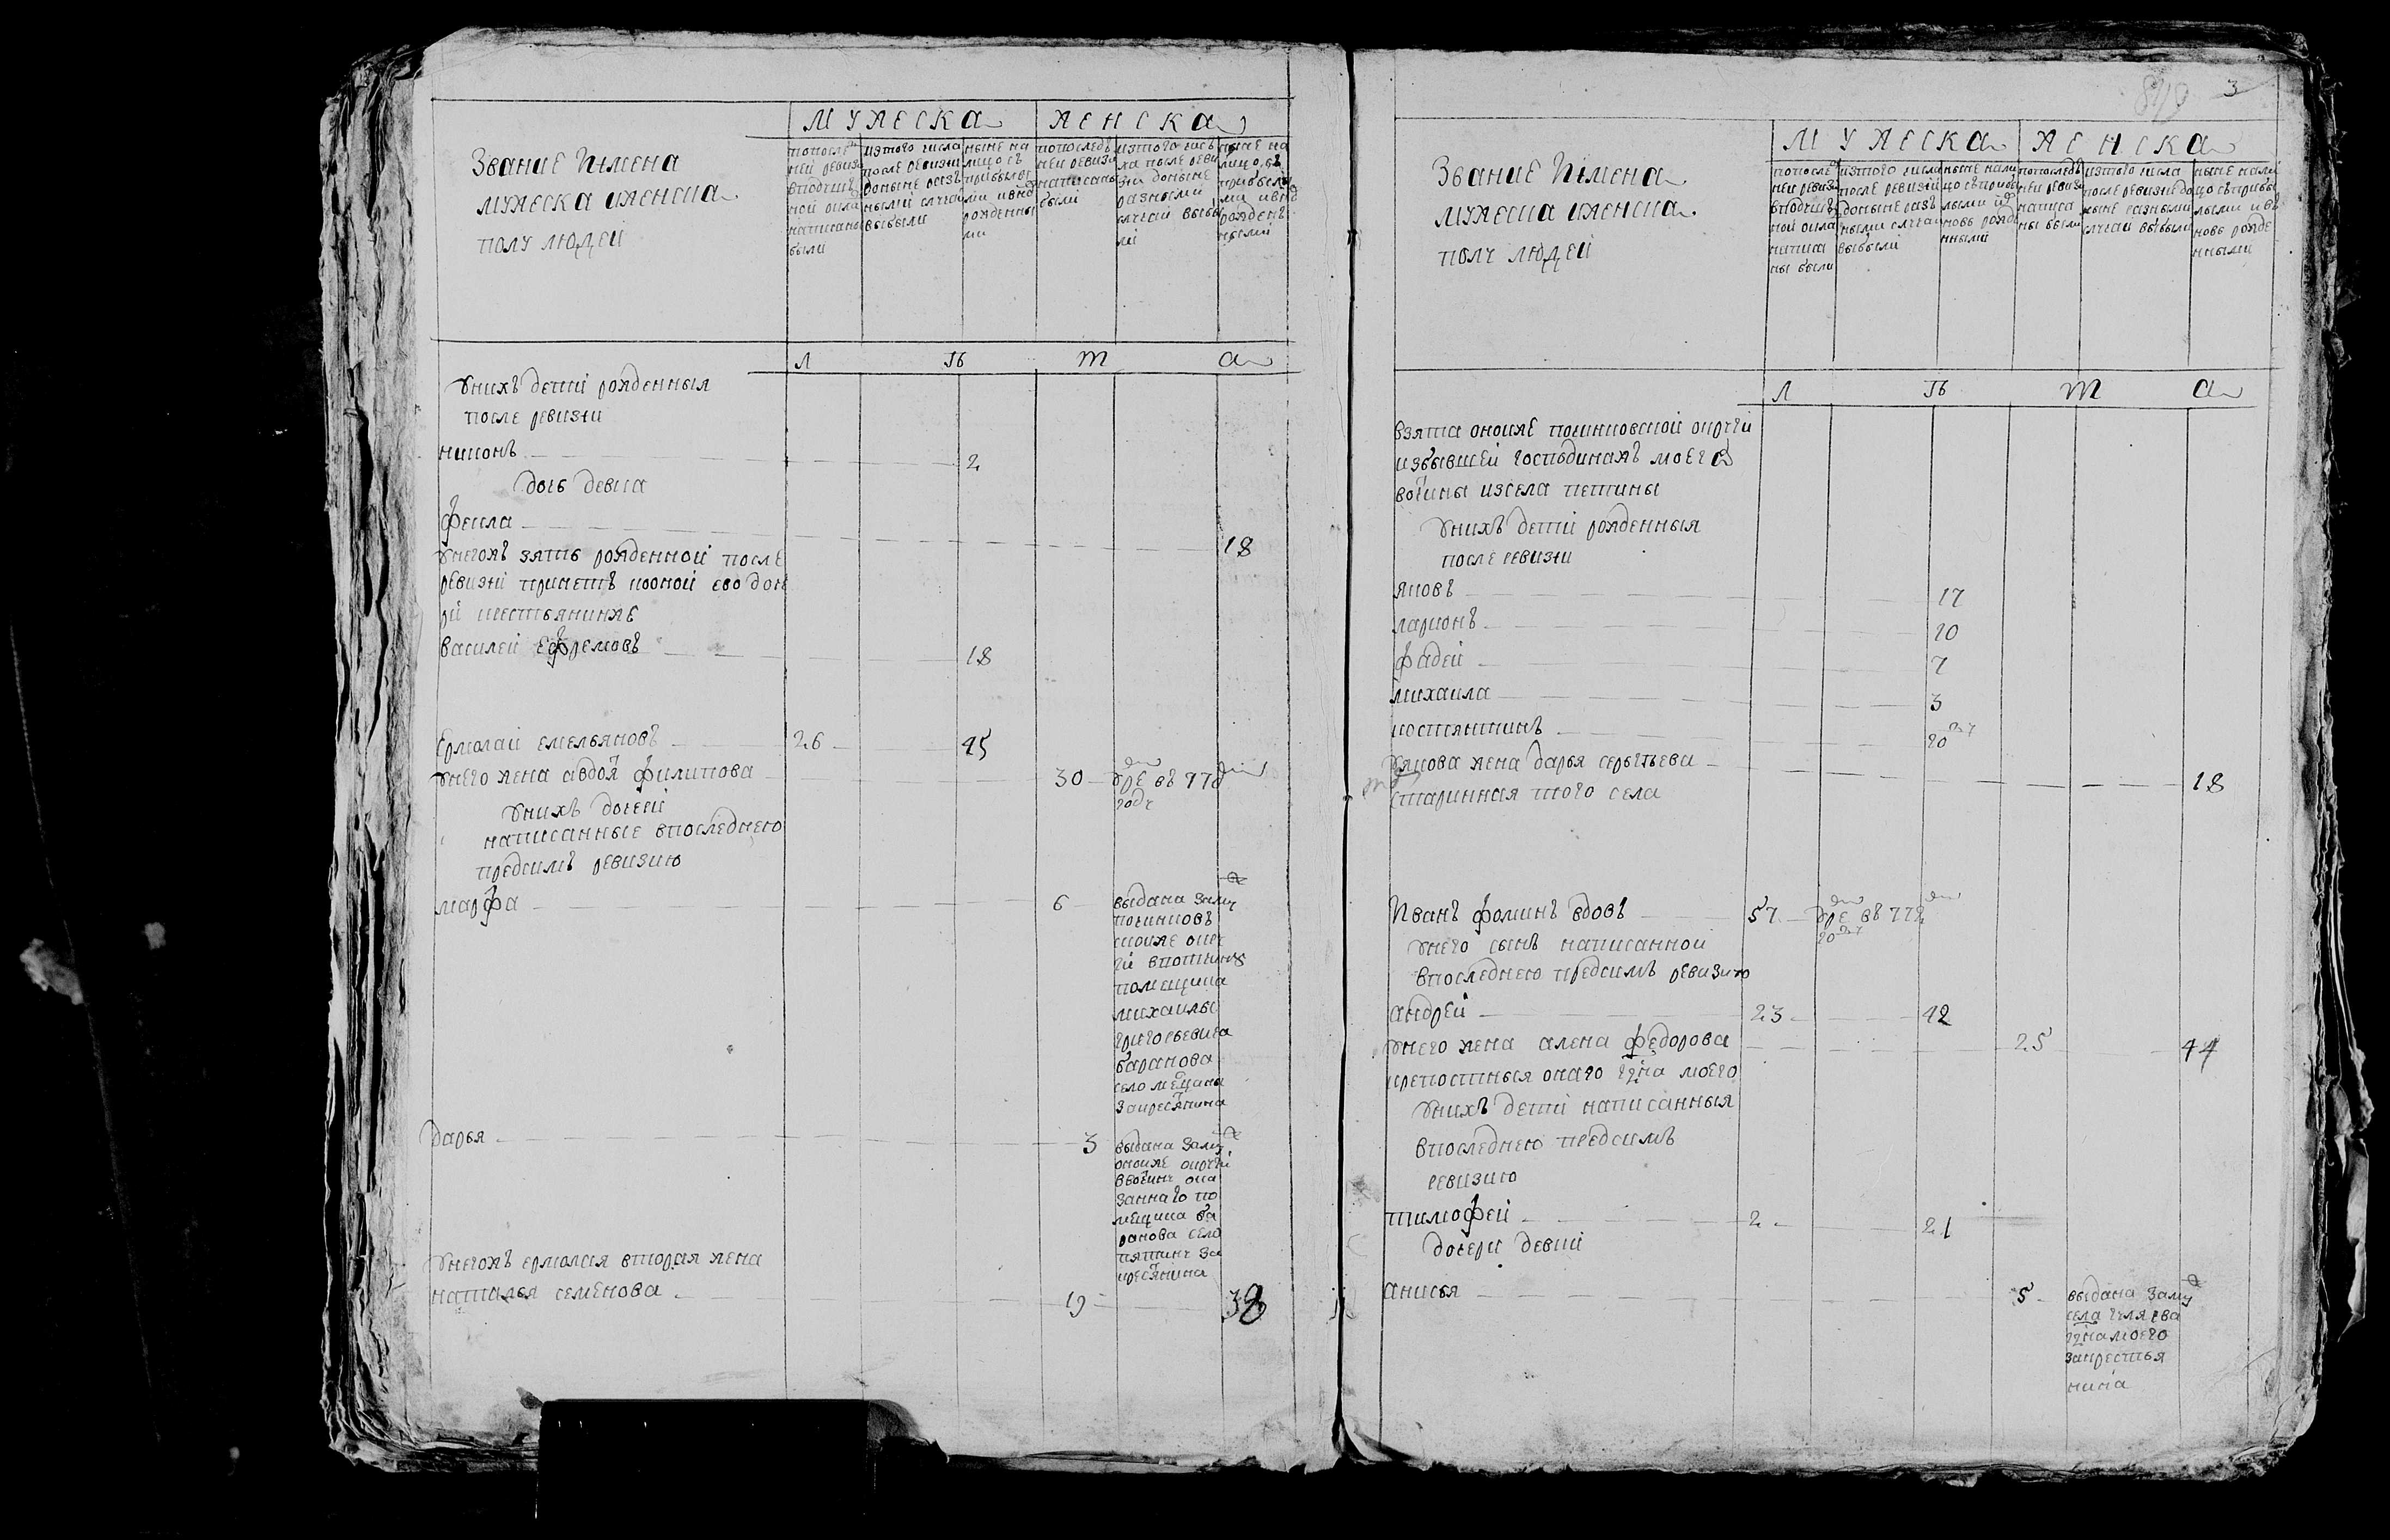 Звание Иімена
мужеска иженска
полу людей
мужеска
женска
попослед
ней ревизи
вподуш
ной окла
написаны
были
изтого числа
после ревизии
доныне разъ
ными случаи
выбыли
ныне на
лицо съ
прибылы
ми ивно
рожденны
ми
попослед
ней ревизи
написаны
были
изтого чис
ла после реви
зии доныне
разными
случаи выбы
ли
ныне на
лицо съ
прибылы
ми ивно
рожден
ными
л ѣ т а
Унихъ детей рожденныя
после ревизии
никонъ 2
дочь девка
фекла 18
Унегожъ зять рожденной после
ревизии принетъ коной ево доче
ри крестьянинже
василей ефремовъ 18
Ермолай емельяновъ 26 45
Унего жена авдотя филипова 30 умре въ 778
году
Унихъ дочери
написанные впоследнею
предсимъ ревизию
марфа 6 выдана замуж
починковъ
скоиже окру
ги ввотчину
помещика
михаилы
григорьевича
баранова
село мещана
закрестянина
дарья 3 выдана замуж
оноиже округи
ввотчину ока
занного по
мещика ба
ранова село
пятину за
крестянина
Унегожъ ермолая вторая жена
наталья семенова 19 38
3
Звание Иімена
мужеска иженска
полу людей
мужеска
женска
попослед
ней ревизи
вподуш
ной окла
написа
ны были
изтого числа
после ревизии
доныне разъ
ными случаи
выбыли
ныне нали
цо съприбы
лыми ив
новь рожде
нными
попоследъ
ней ревизи
написа
ны были
изтого числа
после ревизиидо
ныне разными
случаи выбыли
ныне нали
цо съприбы
лыми ивъ
новь рожде
нными
л ѣ т а
взята оноиже починковской округи
избывшей господинажъ моего
вотчины изсела петины
Унихъ детей рожденныя
после ревизии
яковъ 17
ларионъ 10
фадей 7
михаила 3
костянтинъ
Уякова жена дарья сергеева
старинная того села 18
Иванъ фоминъ вдовъ 57 умре въ 772
году
Унего сынъ написанной
впоследнею предсимъ ревизию
андрей 23 42
Унего жена алена федорова 25 44
крепостныя онаго гдна моего
Унихъ дети написанныя
впоследнею предсимъ
ревизию
тимофей 2 21
дочери девки
анисья 5 выдана замуж
села
гдна моего
закрестья
нина